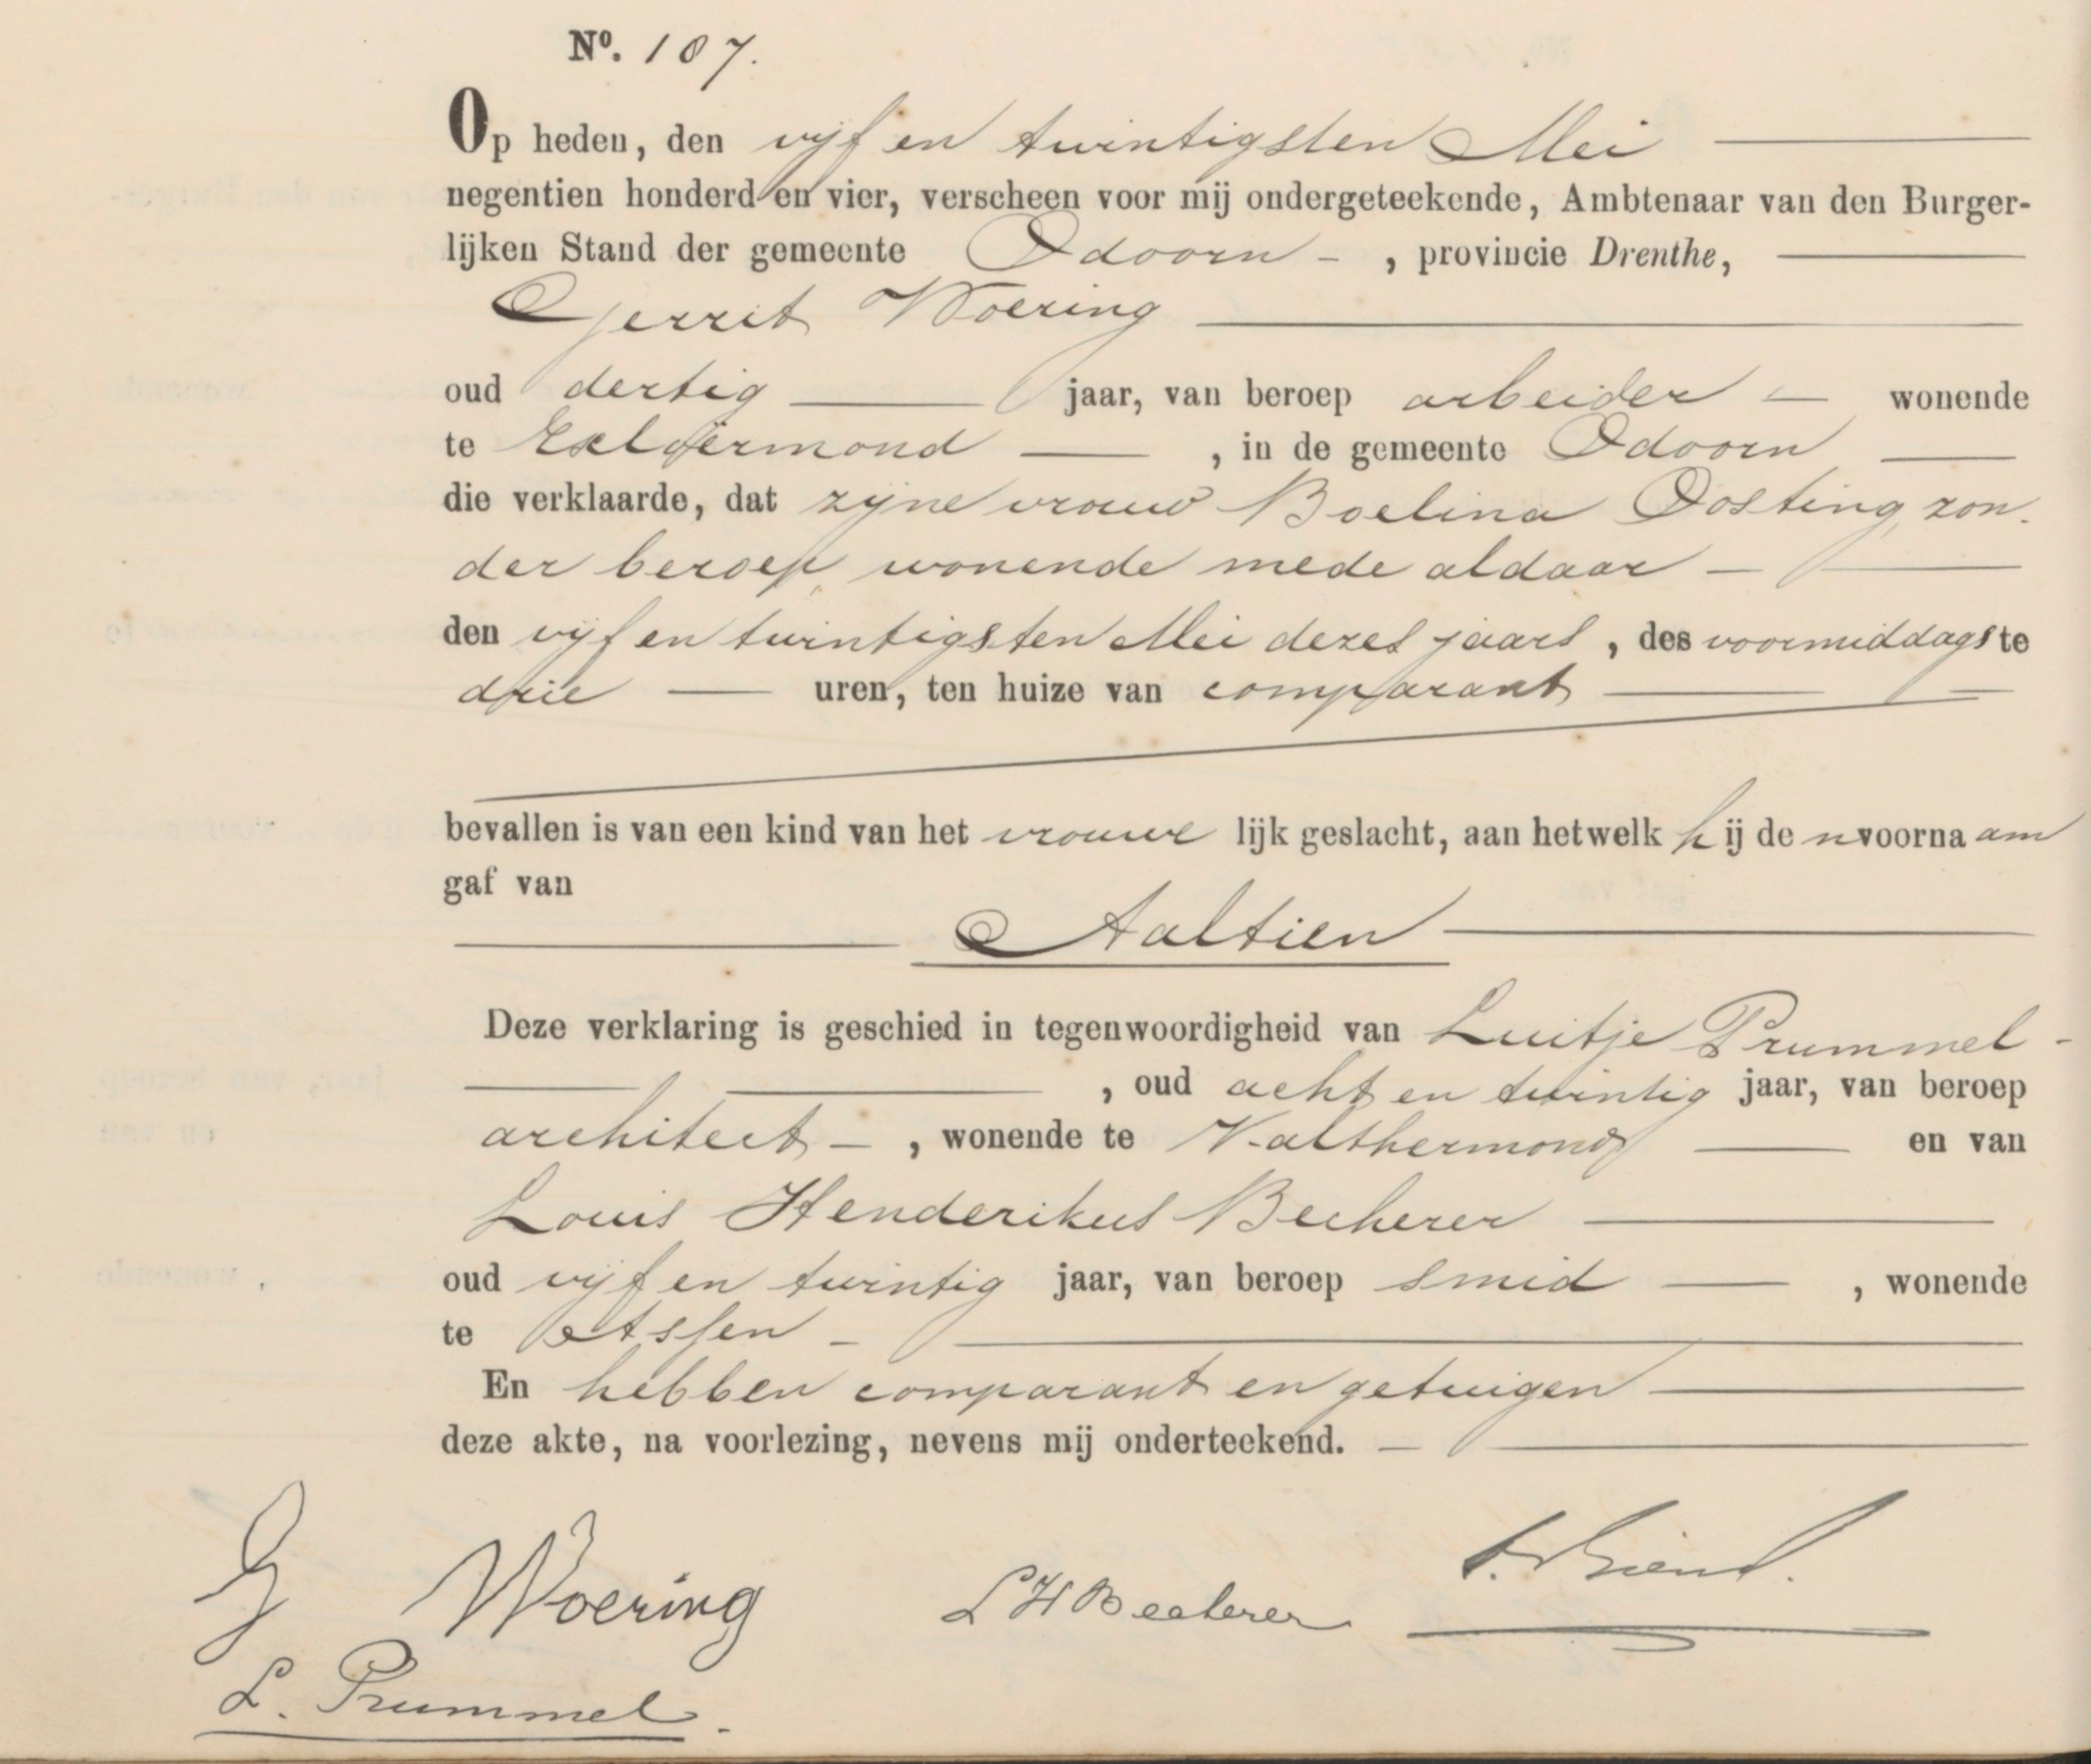 Nº. 107.
Op heden, den vijf en twintigsten Mei
negentien honderd en vier, verscheen voor mij ondergeteekende, Ambtenaar van den Burger-
lijken Stand der gemeente Odoorn - , provincie Drenthe,
Gerrit Woering
oud dertig jaar, van beroep arbeider - wonende
te Exloërmond , in de gemeente Odoorn
die verklaarde, dat zijne vrouw Boelina Oosting, zon-
der beroep, wonende mede aldaar -
den vijf en twintigsten Mei dezes jaars , des voormiddags te
drie uren, ten huize van comparant
bevallen is van een kind van het vrouwe lijk geslacht, aan hetwelk hij de n voornaam
gaf van
Aaltien
Deze verklaring is geschied in tegenwoordigheid van Luitje Prummel -
, oud acht en twintig jaar, van beroep
architect - , wonende te Valthermond en van
Louis Henderikus Becherer
oud vijf en twintig jaar, van beroep smid , wonende
te Assen -
En hebben comparant en getuigen
deze akte, na voorlezing, nevens mij onderteekend. -
G Woering
LHBecherer
L. Prummel.